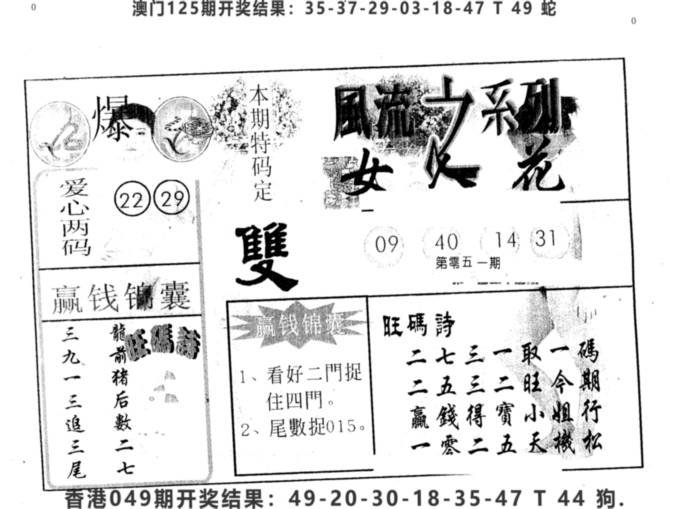 澳门125期开奖结果：35-37-29-03-18-47 T 49 蛇
0
0
爆
本期特码定
風流之系列
女人花
爱心两码
22 29
雙
09 40 14 31
第零五一期
赢钱锦囊
旺碼詩
龍前猪后數二七
三九一三追三尾
赢钱锦囊
1、看好二門捉
住四門。
2、尾數捉015。
旺碼詩
碼期行松
一今姐機
取旺小天
一二寶五
三三得二
七五錢零
二二赢一
香港049期开奖结果：49-20-30-18-35-47 T 44 狗.